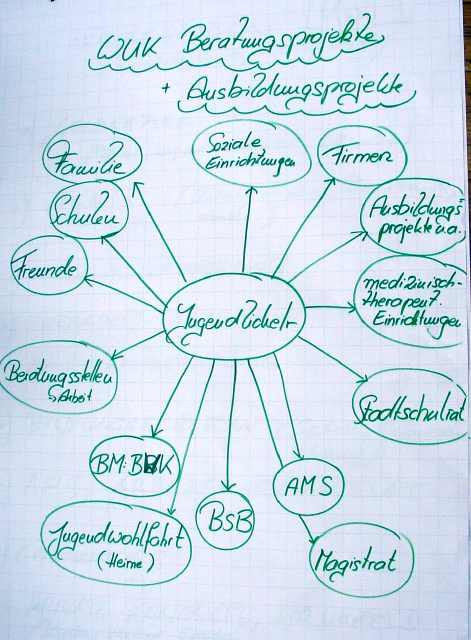 WUK Beratungsprojekte
+ Ausbildungsprojekte
Familie
Soziale
Einrichtungen
Firmen
Schulen
Ausbildungs
projekte u.a.
Freunde
medizinisch-
therapeut.
Einrichtungen
Jugendliche/r
Beratungsstellen
↳ Arbeit
Stadtschulrat
BM:BWK
AMS
BSB
Jugendwohlfahrt
(Heime)
Magistrat